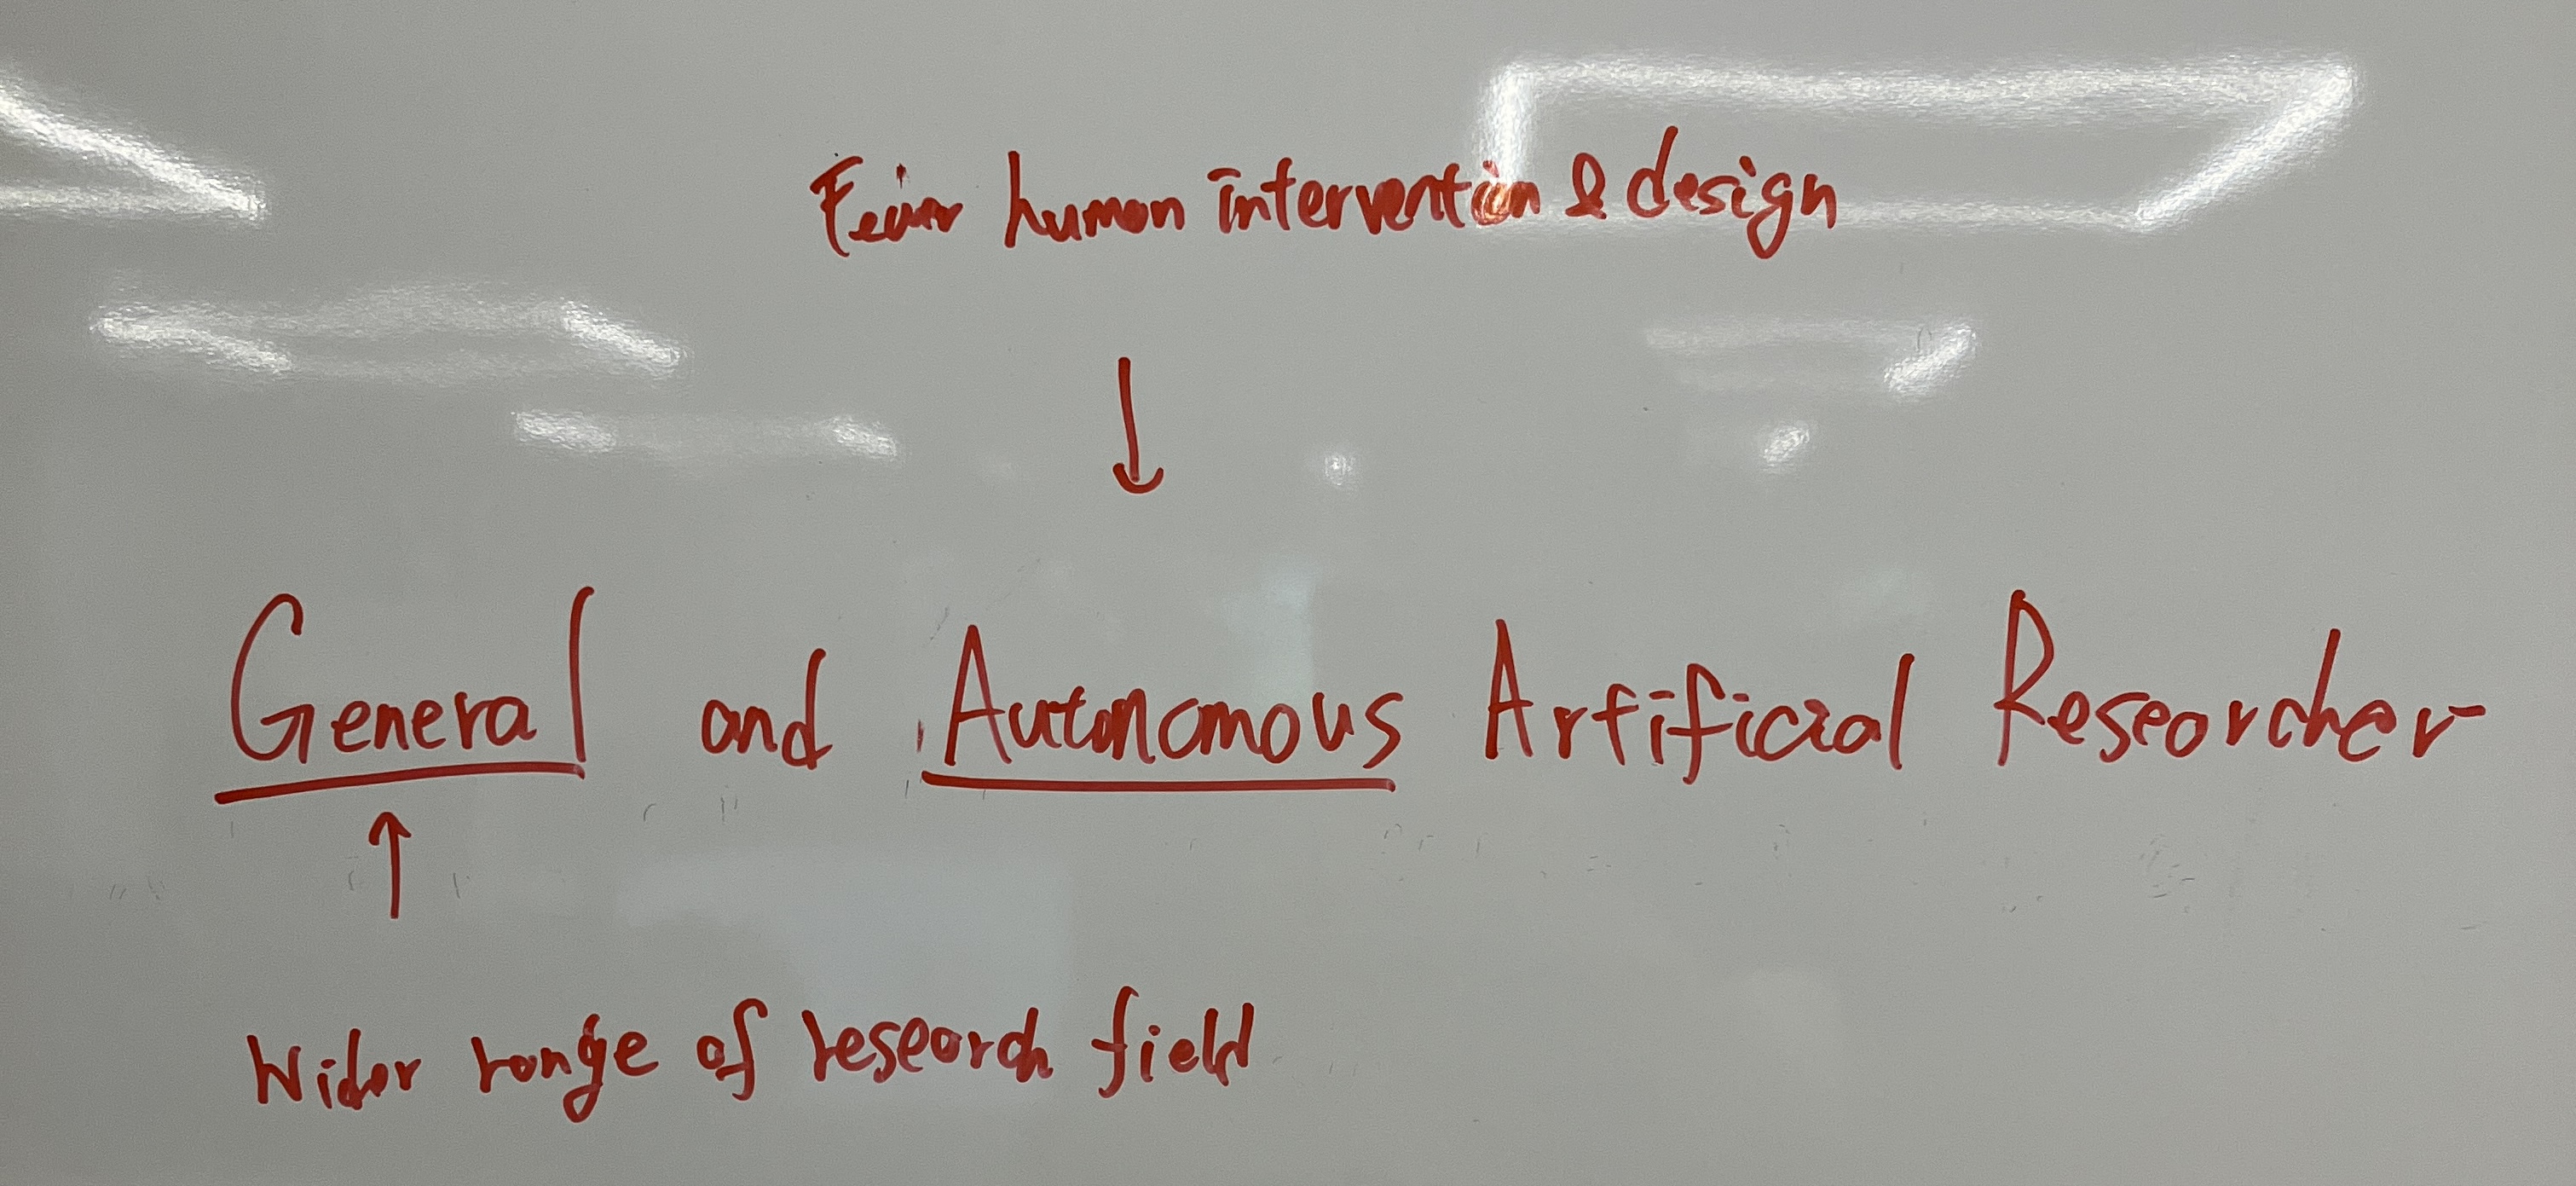 Fewer human intervention & design
↓
General and Autonomous Artificial Researcher
↑
Wider range of research field